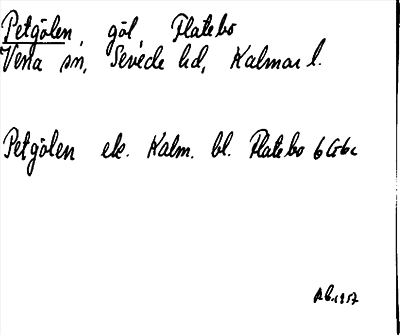 Petgölen, göl, Flatebo
Vena sn, Sevede hd, Kalmar l.
Petgölen ek. Kalm. bl. Flatebo 6 G 6c
1957